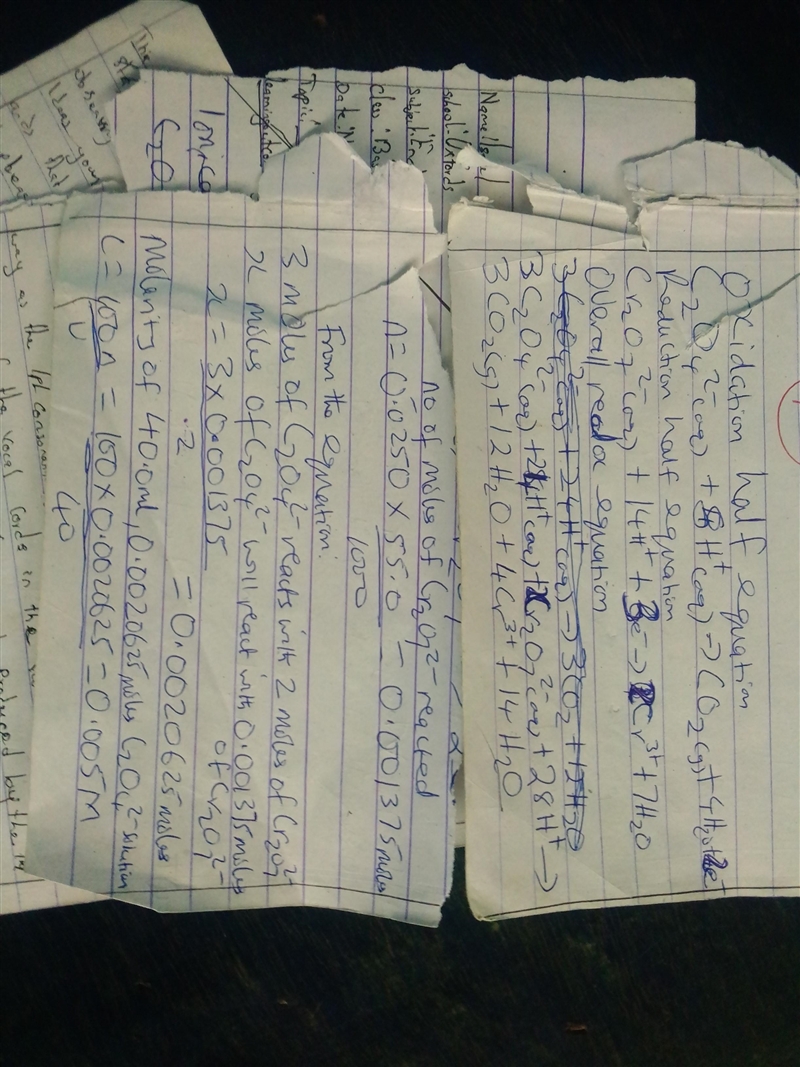 Oxidation half equation
C₂O₄²⁻(aq) + 8H⁺(aq) → CO₂(g) + 4H₂O + 2e⁻
Reduction half equation
Cr₂O₇²⁻(aq) + 14H⁺ + 3e⁻ → 2Cr³⁺ + 7H₂O
Overall redox equation
3C₂O₄²⁻(aq) + 24H⁺(aq) → 3CO₂ + 12H₂O
3C₂O₄²⁻(aq) + 24H⁺(aq) + 2Cr₂O₇²⁻(aq) + 28H⁺ →
3CO₂(g) + 12H₂O + 4Cr³⁺ + 14H₂O
no of moles of Cr₂O₇²⁻ reacted
n = 0.0250 × 55.0 = 0.001375 moles
1000
From the equation:
3 moles of C₂O₄²⁻ reacts with 2 moles of Cr₂O₇²⁻
x moles of C₂O₄²⁻ will react with 0.001375 moles
of Cr₂O₇²⁻
x = 3 × 0.001375
2
= 0.0020625 moles
Molarity of 40.0ml, 0.0020625 moles C₂O₄²⁻ solution
C = 100n = 100 × 0.0020625 = 0.005M
V
40
Name:
School: Oxfords
Subject:
Class: Ba
Date:
Topic:
Ionic
C₂O
The
observing
way as the /p/ consonan
the vocal cords in the
produced by the